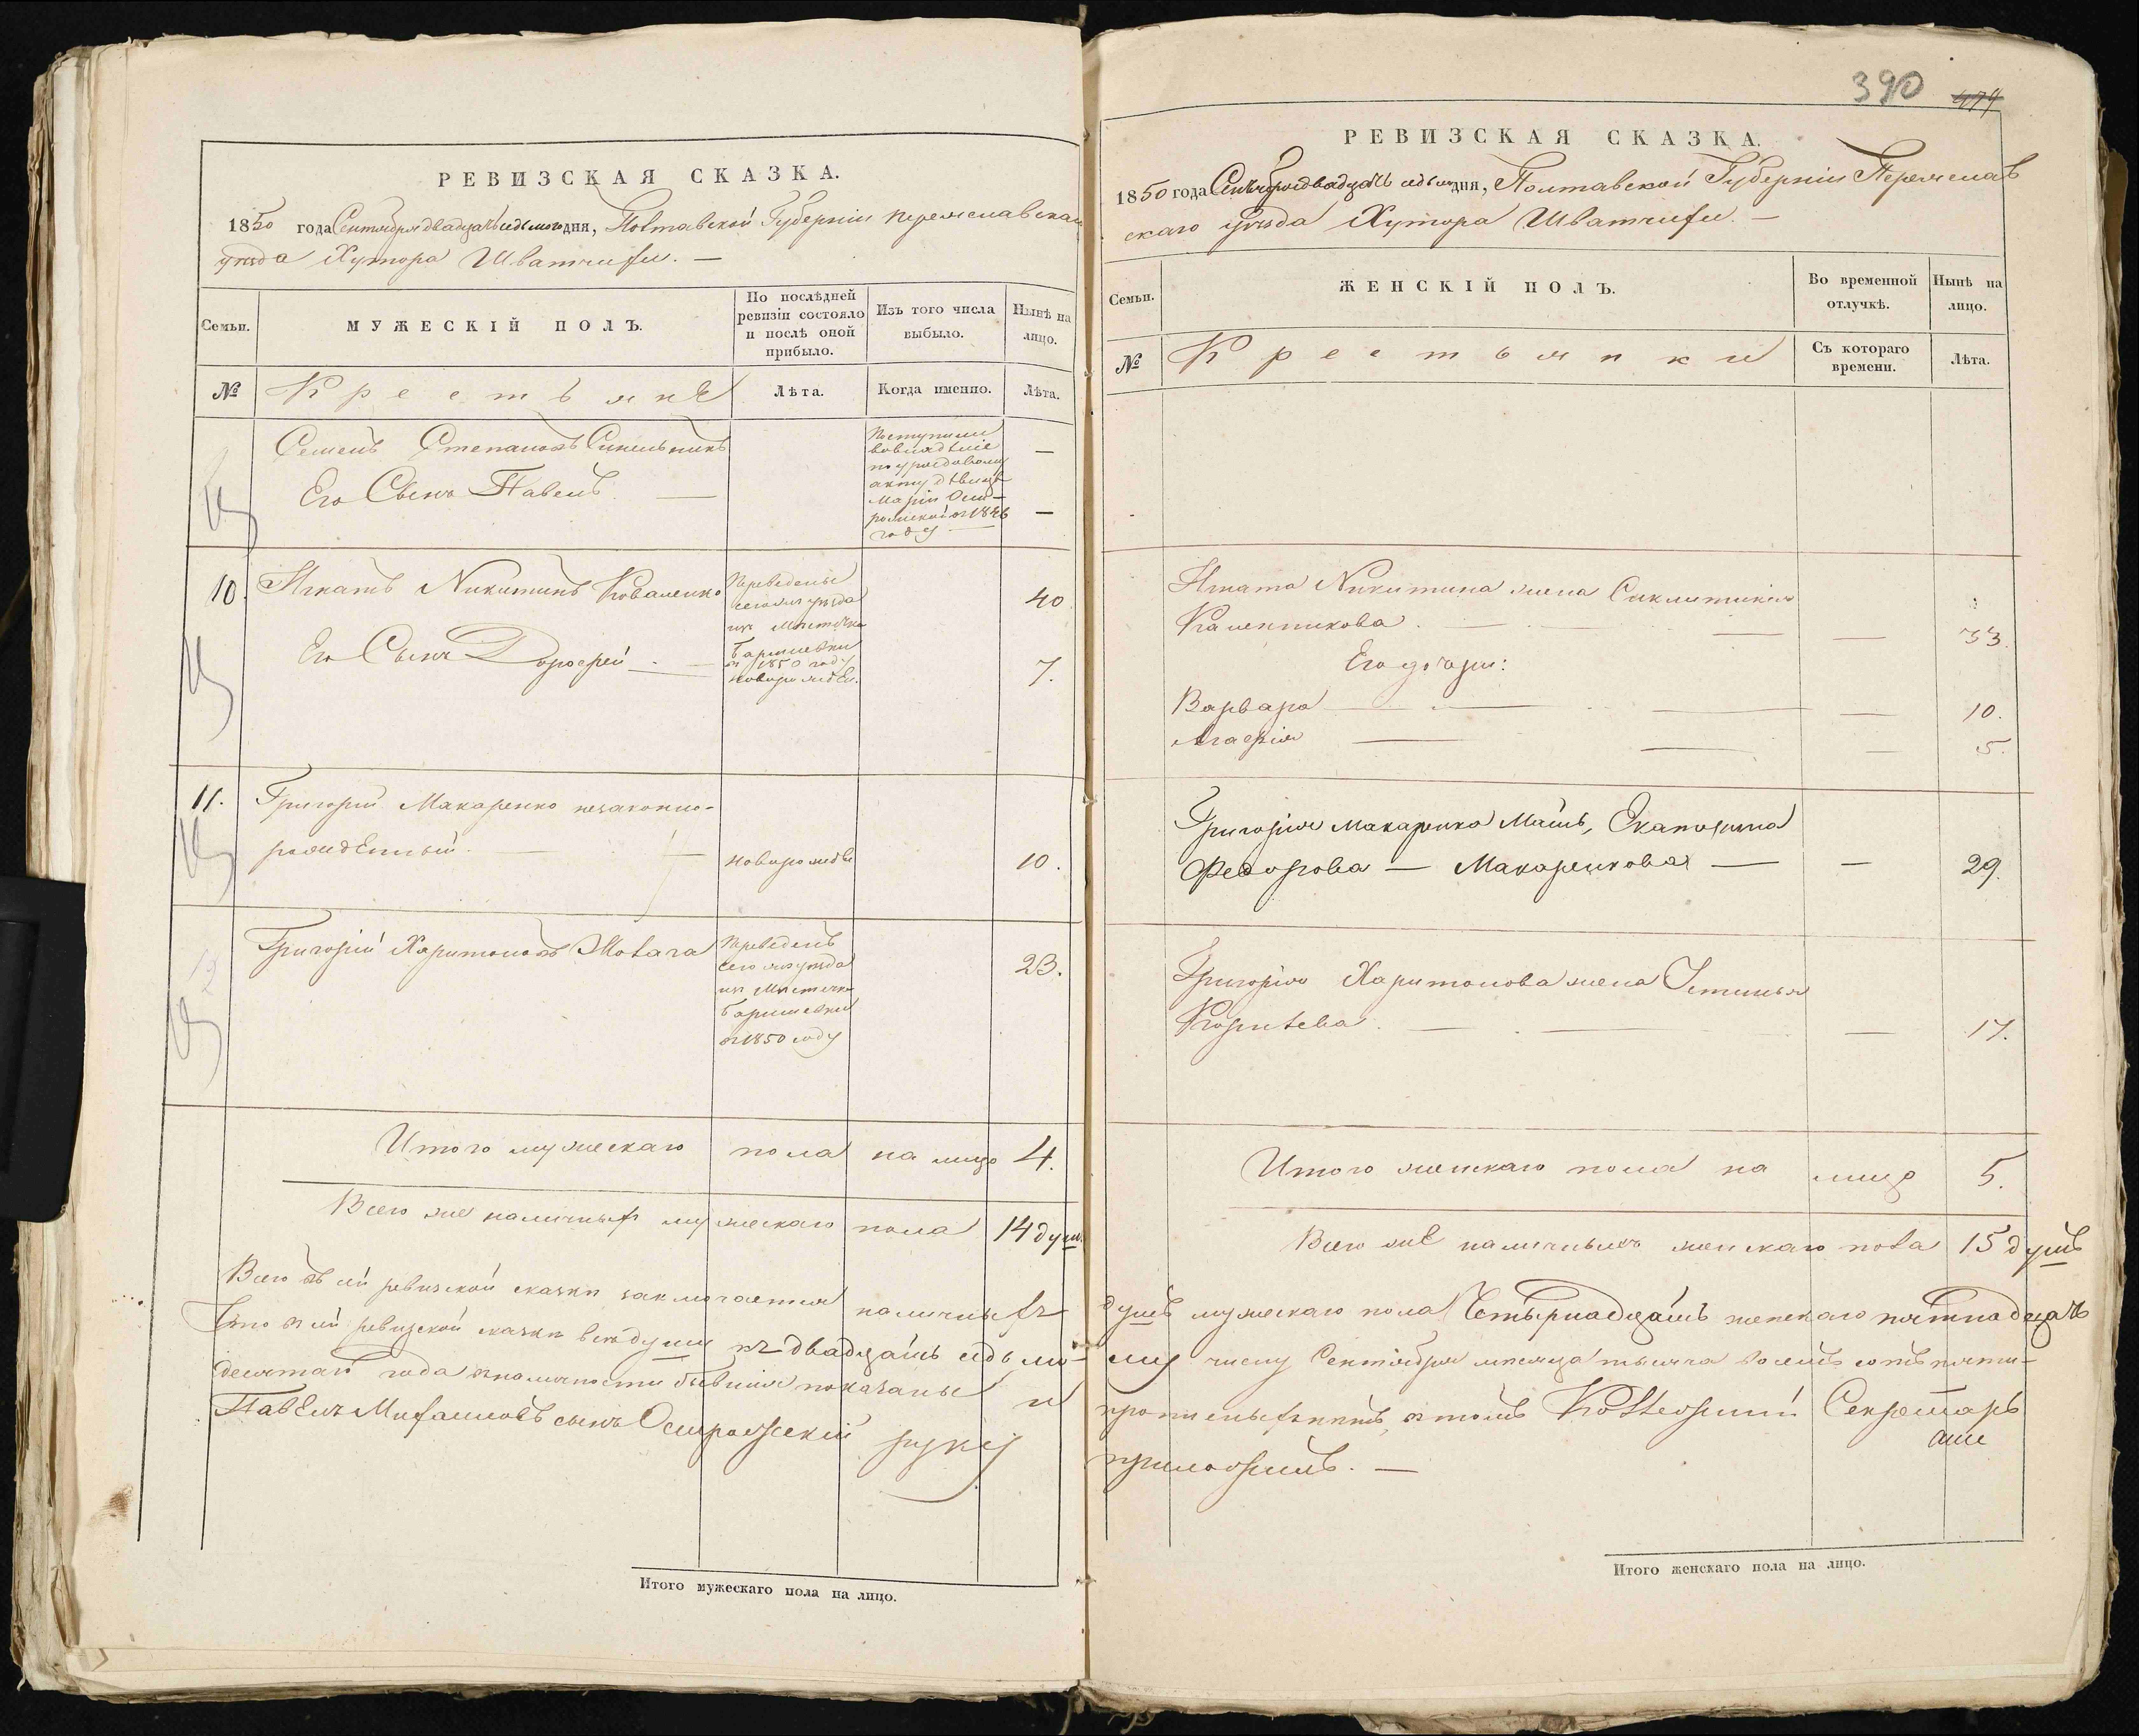 РЕВИЗСКАЯ СКАЗКА.
1850 года Сентября двадцать седьмого дня, Полтавской Губерніи Переяславскаго
уѣзда Хутора
Семьи.
МУЖЕСКІЙ ПОЛЪ.
По послѣдней
ревизіи состояло
и послѣ оной
прибыло.
Изъ того числа
выбыло.
Нынѣ на
лицо.
№
Крестьяне
Лѣта.
Когда именно.
Лѣта.
Семенъ Степановъ
Его Сынъ Павелъ —
Поступили
во владѣніе
по
акту дѣвицѣ
Маріи
въ 1846
году —
—
—
10. Игнатъ Никитинъ Коваленко
Его Сынъ Дорофей —
Переведены
сего же уѣзда
изъ Мѣстечка
Баришевки
въ 1850 году
новорожден.
40
7.
11. Григорій Макаренко незаконно-
рожденный. —
новорожде
10.
12
Григорій Харитоновъ
Переведенъ
сего же уѣзда
изъ Мѣстечка
Баришевки
въ 1850 году
23.
Итого мужескаго пола на лицо 4.
Всего же наличныхъ мужескаго пола 14 душ.
Всего въ сей ревизской сказкѣ заключается наличныхъ
Что въ сей ревизской сказкѣ всѣ души къ двадцать седьмо-
десятаго года въ наличности бывшія показаны и
Павелъ Михайловъ сынъ руку
Итого мужескаго пола на лицо.
390 474
РЕВИЗСКАЯ СКАЗКА.
1850 года Сентября двадцать седьмого дня, Полтавской Губерніи Переяслав
скаго уѣзда Хутора
Семьи.
ЖЕНСКІЙ ПОЛЪ.
Во временной
отлучкѣ.
Нынѣ на
лицо.
№
Крестьянки
Съ котораго
времени.
Лѣта.
Игната Никитина жена
— — 33.
Его дочери:
Варвара — — 10.
Агафія — — 5.
Григорія Макаренко Мать, Екатерина
Федорова — Макаренкова — — 29.
Григорія Харитонова жена Устинья
— — 17.
Итого женскаго пола на лицо 5.
Всего же наличныхъ женскаго пола 15 душъ
душъ мужескаго пола Четырнадцать женскаго пятнадцать
му числу Сентября мѣсяца тысяча восемь сотъ пяти-
прописныхъ нѣтъ, въ томъ Секретарь
приложилъ. —
Итого женскаго пола на лицо.